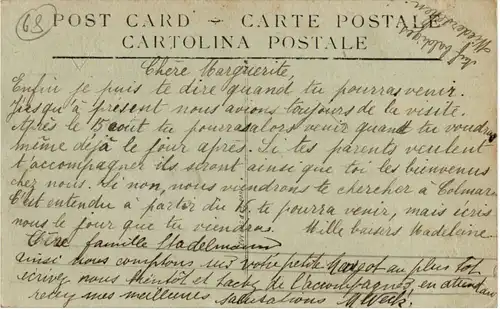 68
POST CARD - CARTE POSTALE
CARTOLINA POSTALE
Chère Marguerite,
Enfin je puis te dire quand tu pourras venir.
Jusqu'à présent nous avions toujours de la visite.
Après le 15 août tu pourras alors venir quand tu voudras
même déjà le jour après. Si tes parents veulent
t'accompagner ils seront ainsi que toi les bienvenus
chez nous. Si non, nous viendrons te chercher à Colmar.
C'est entendu à partir du 15 te pourra venir, mais écris
nous le jour que tu viendras. Mille baisers Madeleine
Chère famille Stadelmann
ainsi nous comptons sur votre petite Margot au plus tôt
écrivez nous bientôt et tachez de l'accompagnez, en attendant
recev mes meilleures salutations M